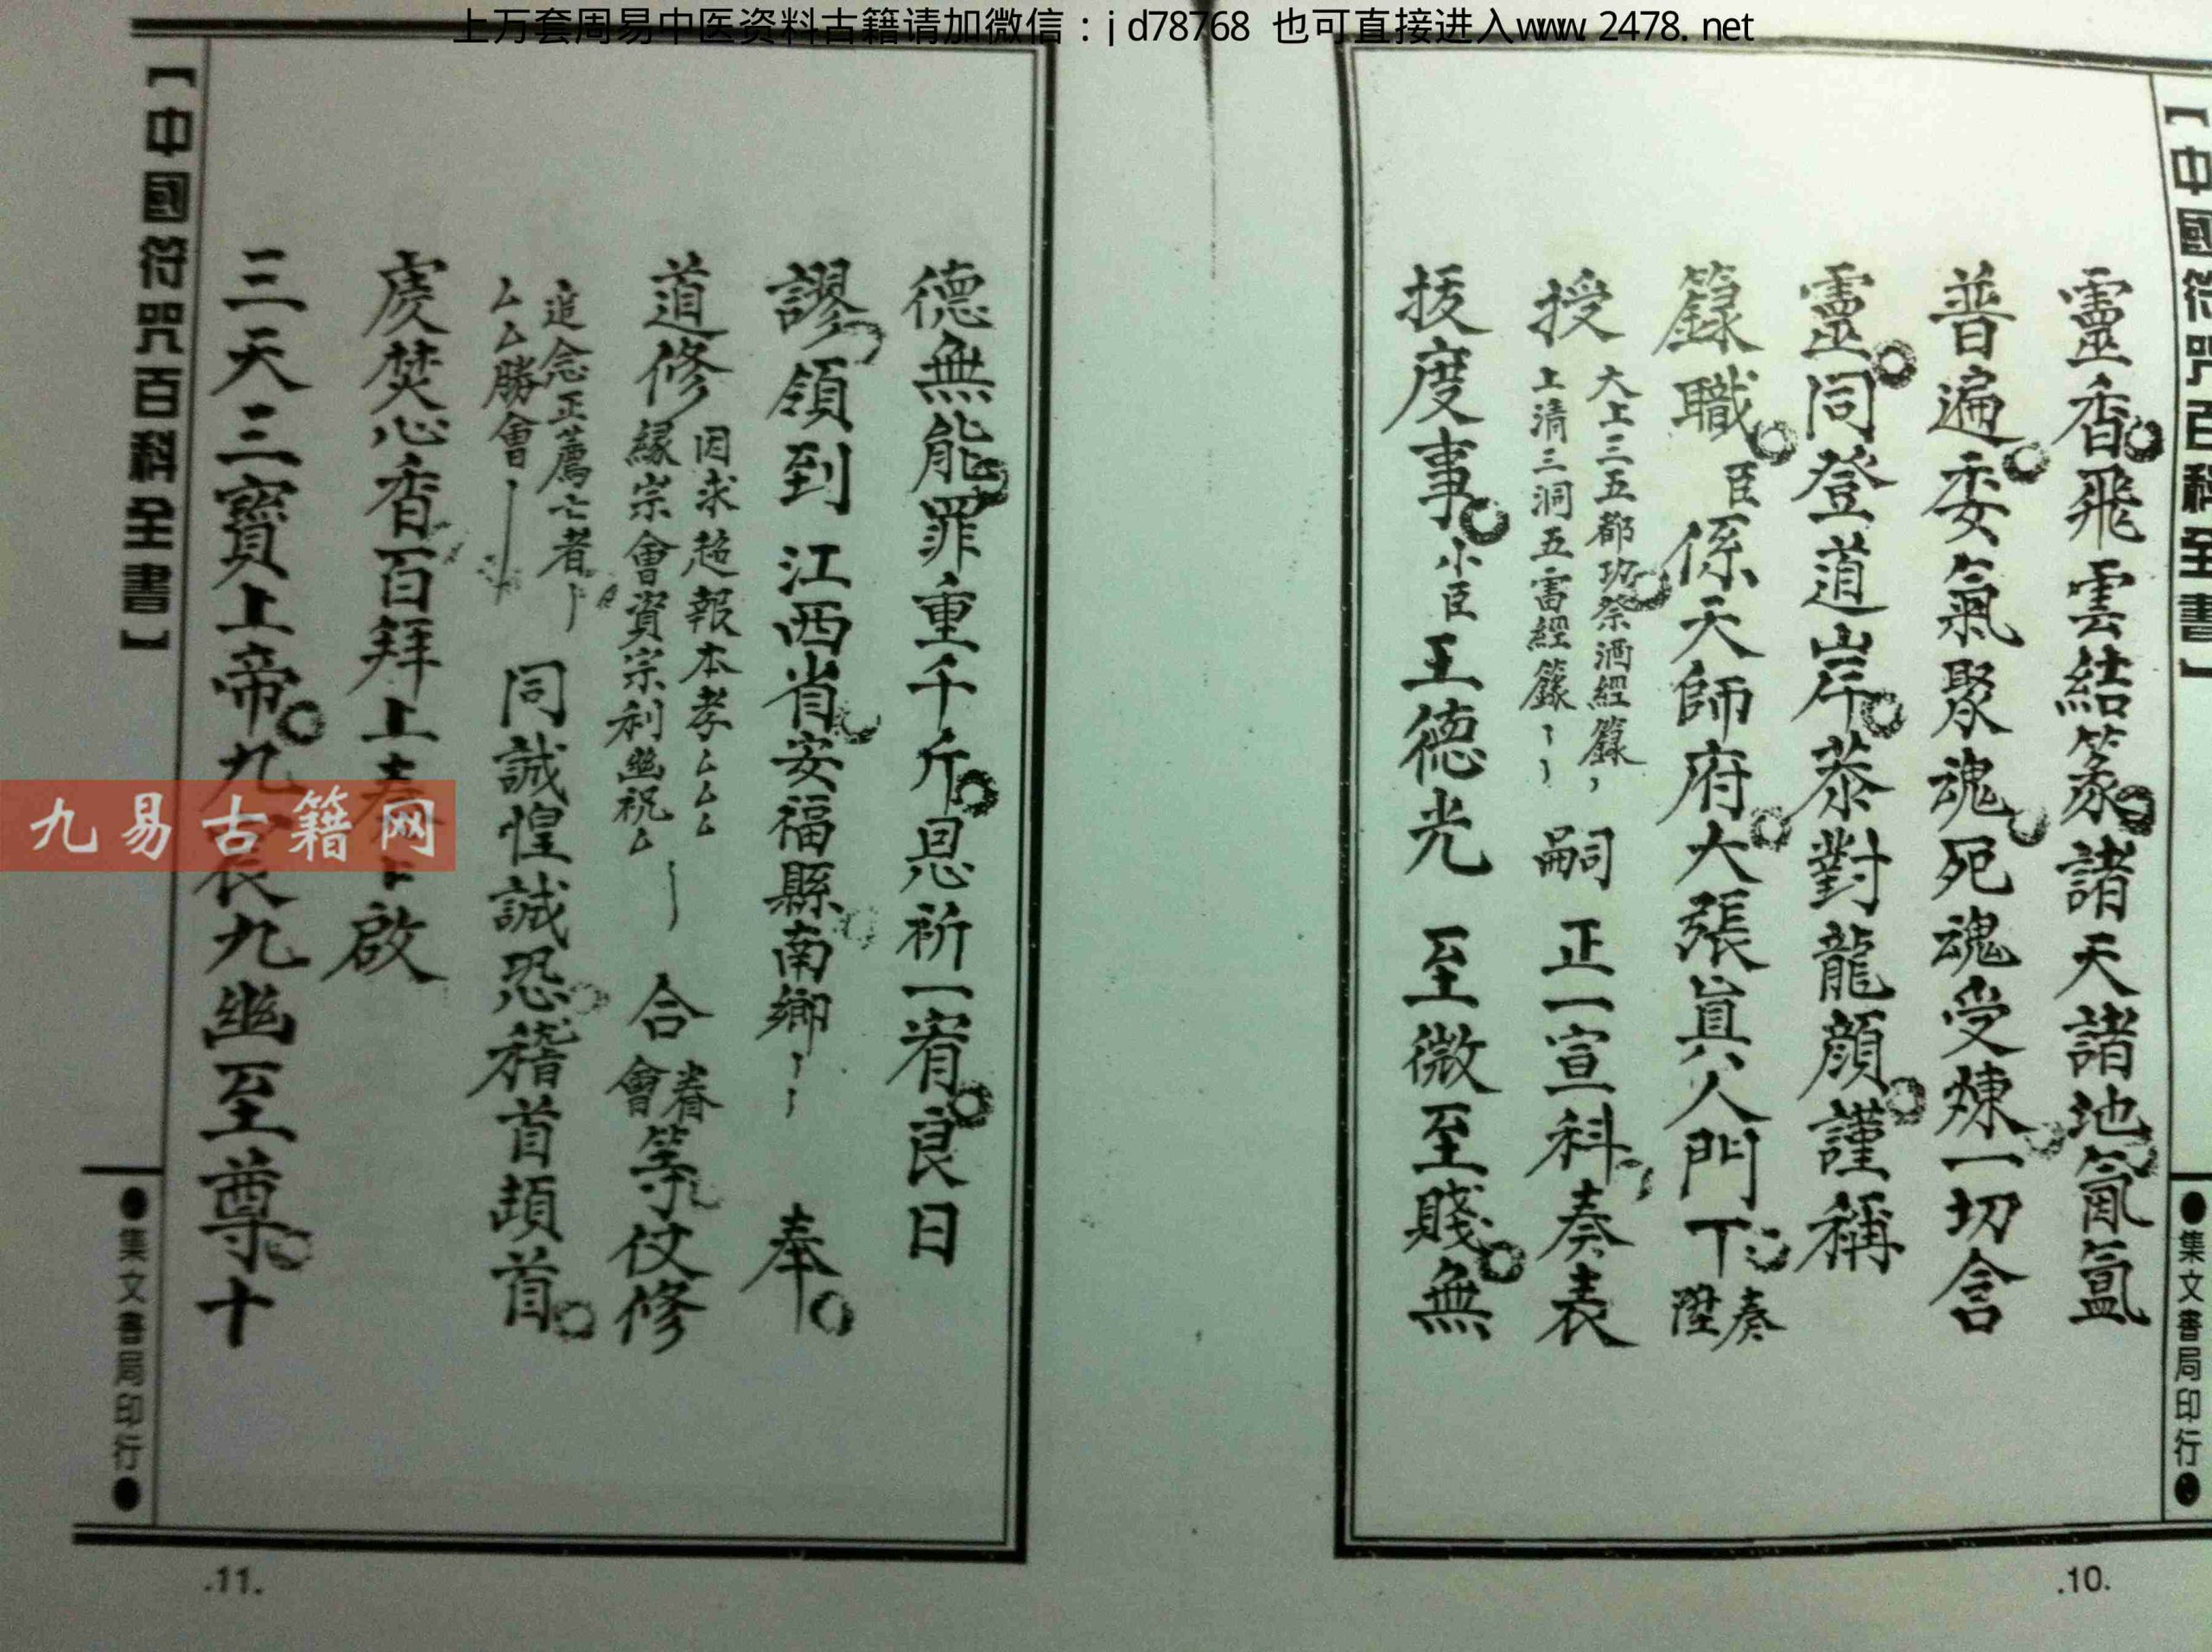 上万套周易中医资料古籍请加微信：jd78768 也可直接进入www.2478.net
【中國符咒百科全書】
●集文書局印行●
靈香飛雲結篆諸天諸地氤氳
普遍委氣聚魂死魂受煉一切含
靈同登道岸恭對龍顏謹稱
籙職臣係天師府大張眞人門下奏陞
授大上三五都功祭酒經籙
上清三洞五雷經籙嗣正一宣科奏表
拔度事小臣王德光至微至賤無
.10.
德無能罪重千斤恩祈一宥良日
謬領到江西省安福縣南鄉奉
道修因求超報本孝厶厶厶
緣宗會資宗利幽祝厶合眷會等仗修
追念正薦亡者
厶厶勝會同誠惶誠恐稽首頓首
虔焚心香百拜上奏上啟
三天三寶上帝九九幽至尊十
【中國符咒百科全書】
●集文書局印行●
.11.
九易古籍网